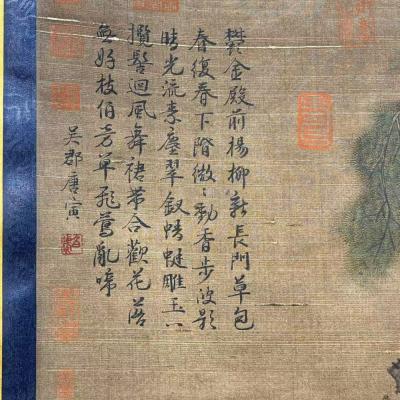 鬱金殿前楊柳新長門草色
春復春下階微〻動香步波影
時光流素塵翠釵蜻蜓雕玉
攬髻迴風舞裙帶合歡花落
無好枝伯勞單飛鶯亂啼
吳郡唐寅